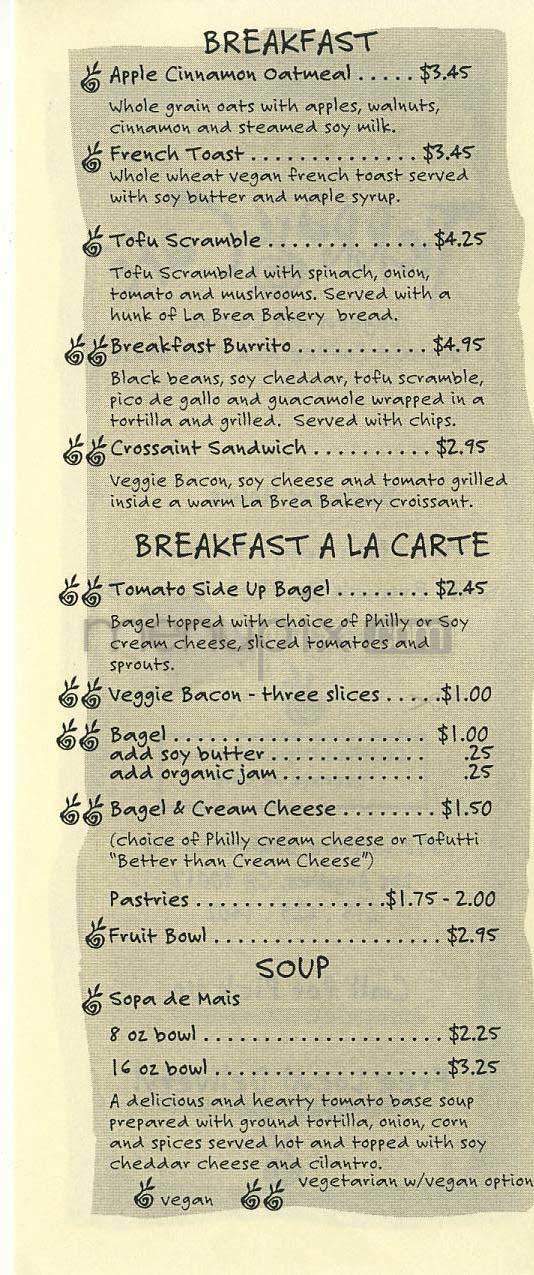 BREAKFAST
Apple Cinnamon Oatmeal ..... $3.45
Whole grain oats with apples, walnuts,
cinnamon and steamed soy milk.
French Toast .............. $3.45
Whole wheat vegan french toast served
with soy butter and maple syrup.
Tofu Scramble ........ ..... $4.25
Tofu Scrambled with spinach, onion,
tomato and mushrooms. Served with a
hunk of La Brea Bakery bread.
Breakfast Burrito ........... $4.95
Black beans, soy cheddar, tofu scramble,
pico de gallo and guacamole wrapped in a
tortilla and grilled. Served with chips.
Crossaint Sandwich .......... $2.95
Veggie Bacon, soy cheese and tomato grilled
inside a warm La Brea Bakery croissant.
BREAKFAST A LA CARTE
Tomato Side Up Bagel ........ $2.45
Bagel topped with choice of Philly or Soy
cream cheese, sliced tomatoes and
sprouts.
Veggie Bacon - three slices ..... $1.00
Bagel ...................... $1.00
add soy butter .............. .25
add organic jam ............. .25
Bagel & Cream Cheese ........ $1.50
(choice of Philly cream cheese or Tofutti
"Better than Cream Cheese")
Pastries .................. $1.75 - 2.00
Fruit Bowl .................... $2.95
SOUP
Sopa de Mais
8 oz bowl ..................... $2.25
16 oz bowl .................... $3.25
A delicious and hearty tomato base soup
prepared with ground tortilla, onion, corn
and spices served hot and topped with soy
cheddar cheese and cilantro.
vegan vegetarian w/vegan option